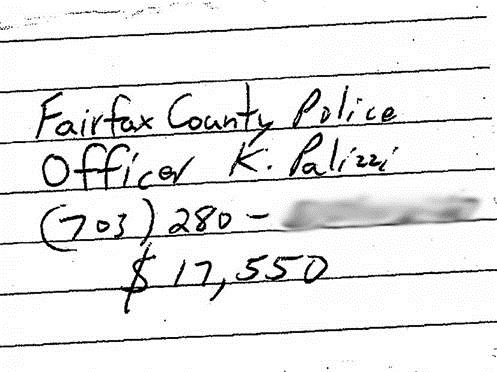 Fairfax County Police
Officer K. Palizzi
(703) 280-
$ 17,550